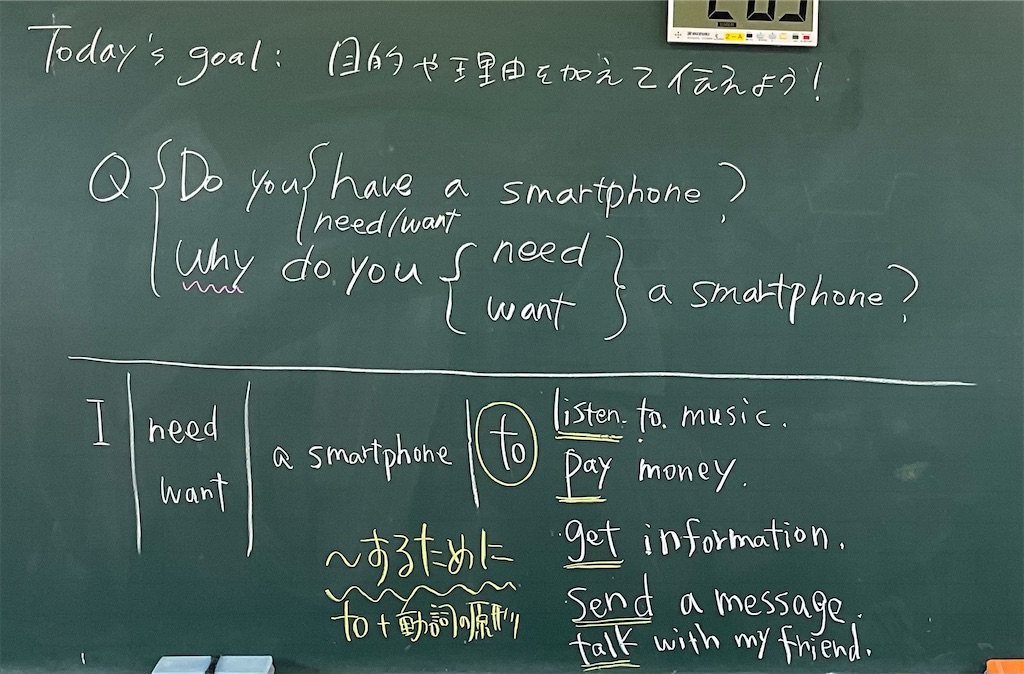 Today's goal: 目的や理由を加えて伝えよう!
Q Do you have a smartphone?
need/want
Why do you need
want
a smartphone?
I
need
want
a smartphone
to
listen to music.
pay money.
get information.
send a message.
talk with my friend.
~するために
to+動詞の原形